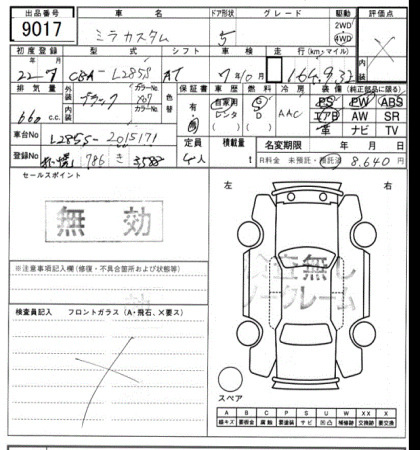 出品番号 車 名 ドア形状 グレード 駆動 評価点
9017 ミラカスタム 5 2WD 4WD ×
内装
初度登録 型 式 シフト 車 検 走 行 (km・マイル)
年 月
22-7 CBA-L285S AT 7年10月
排 気 量 外装色 カラーNo. 内装色 カラーNo. 色替 保証書 車 歴 燃 料 冷 房 装 備 (純正部品に限る)
660 c.c. ブラック X07 有 自家用 レンタ G D AAC PS PW ABS
エアB AW SR
革 ナビ TV
車台No L285S-2015171
定員 4人 積載量 t 名変期限 年 月 日
登録No 786 き 3588 R料金 未預託・預託済 8,640円
セールスポイント
無 効
左 右
検査無し
ノークレーム
※注意事項記入欄(修復・不具合箇所および状態等)
検査員記入 フロントガラス (A・飛石、×要ス)
スペア
A B C P S U W X XX
線キズ 要板金 腐 触 要塗装 サ ビ 凹 凸 補修跡 交換跡 要交換